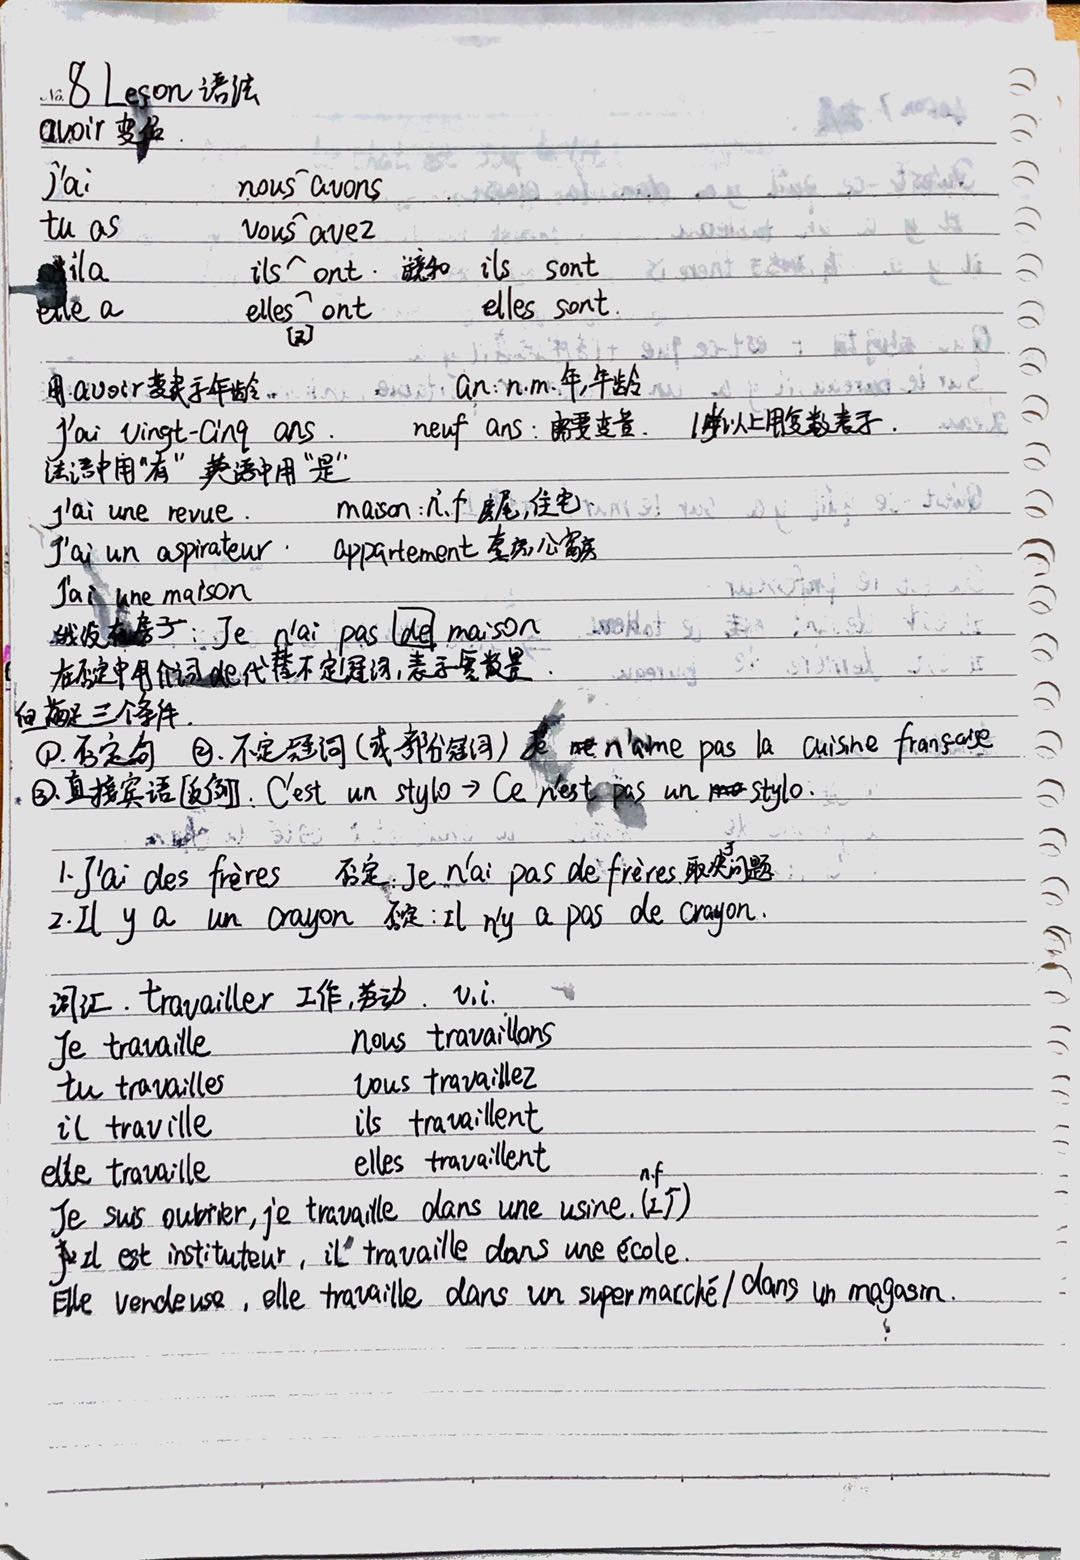 No. 8 Leson 语法
avoir 变位.
j'ai nous avons
tu as vous avez
il a ils ont. 读和 ils sont
elle a elles ont elles sont.
[z]
用 avoir 表示年龄. an: n.m. 年, 年龄
J'ai vingt-cinq ans. neuf ans: 需要变音. 1岁以上用复数表示.
法语中用"有" 英语中用"是"
J'ai une revue. maison: n.f 房屋, 住宅.
J'ai un aspirateur. appartement 套房, 公寓房
J'ai une maison
我没有房子: Je n'ai pas de maison
在否定中用介词 de 代替不定冠词, 表示零数量.
但满足三个条件.
①. 否定句 ②. 不定冠词 (或部分冠词) n'aime pas la cuisine française
③. 直接宾语 [反例]: C'est un stylo → Ce n'est pas un stylo.
1. J'ai des frères 否定. Je n'ai pas de frères. 取决于问题
2. Il y a un crayon 否定: Il n'y a pas de crayon.
词汇. travailler 工作, 劳动. v.i.
Je travaille nous travaillons
tu travailles vous travaillez
il traville ils travaillent
elle travaille elles travaillent
n.f
Je suis oubrier, je travaille dans une usine. (工厂)
Il est instituteur, il travaille dans une école.
Elle vendeuse, elle travaille dans un supermarché / dans un magasin.